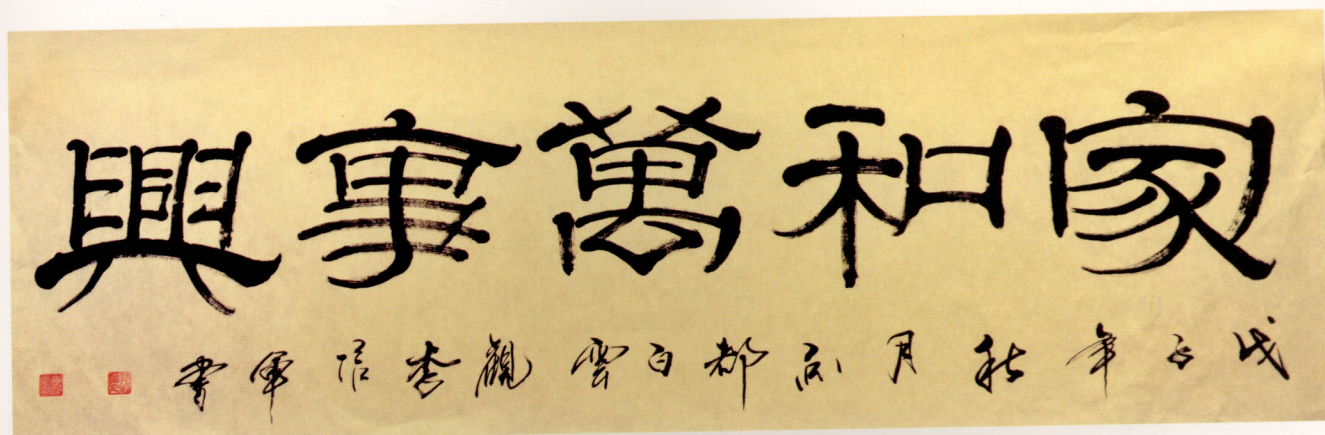 家和萬事興
戊子年秋月京都白雲觀李信軍書